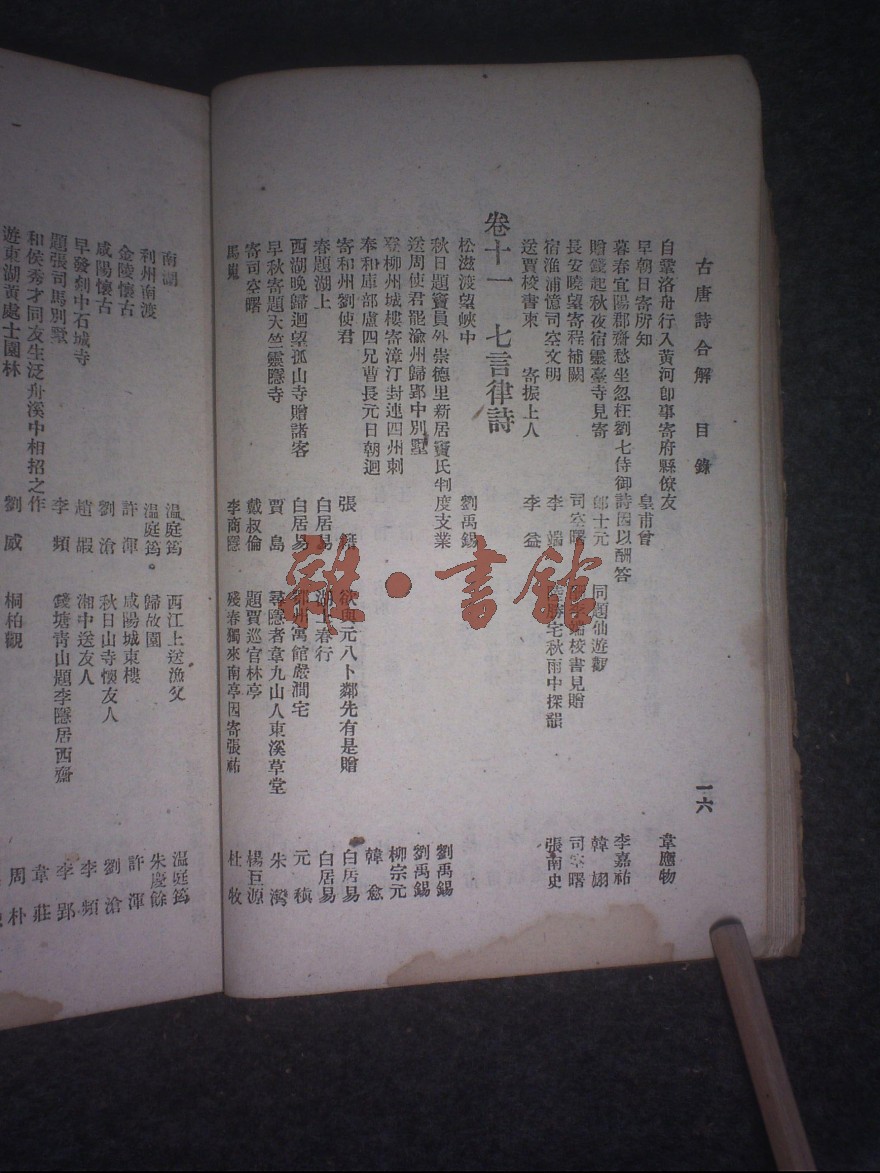 古唐詩合解 目錄 一六
自鞏洛舟行入黃河卽事寄府縣僚友 韋應物
早朝日寄所知 皇甫曾
暮春宜陽郡齋愁坐忽枉劉七侍御詩因以酬答 李嘉祐
贈錢起秋夜宿靈臺寺見寄 郎士元 同題仙遊觀 韓翃
長安曉望寄程補闕 司空曙 校書見贈 司空曙
宿淮浦憶司空文明 李端 宅秋雨中探韻 張南史
送賈校書東 寄振上人 李益
卷十一 七言律詩
松滋渡望峽中 劉禹錫
秋日題竇員外崇德里新居竇氏判度支業 劉禹錫
送周使君罷渝州歸郢中別墅 劉禹錫
登柳州城樓寄漳汀封連四州刺 柳宗元
奉和庫部盧四兄曹長元日朝迴 韓愈
寄和州劉使君 張籍 欲與元八卜鄰先有是贈 白居易
春題湖上 白居易 湖上春行 白居易
西湖晚歸迴望孤山寺贈諸客 白居易 鄂州寓館嚴澗宅 元稹
早秋寄題天竺靈隱寺 賈島 尋隱者韋九山人東溪草堂 朱灣
寄司空曙 戴叔倫 題賈巡官林亭 楊巨源
馬嵬 李商隱 殘春獨來南亭因寄張祐 杜牧
南湖 温庭筠 西江上送漁父 温庭筠
利州南渡 温庭筠 歸故園 朱慶餘
金陵懷古 許渾 咸陽城東樓 許渾
咸陽懷古 劉滄 秋日山寺懷友人 劉滄
早發剡中石城寺 趙嘏 湘中送友人 李頻
題張司馬別墅 李頻 錢塘青山題李隱居西齋 李郢
和侯秀才同友生泛舟溪中相招之作 韋莊
遊東湖黃處士園林 劉威 桐柏觀 周朴
雜·書館